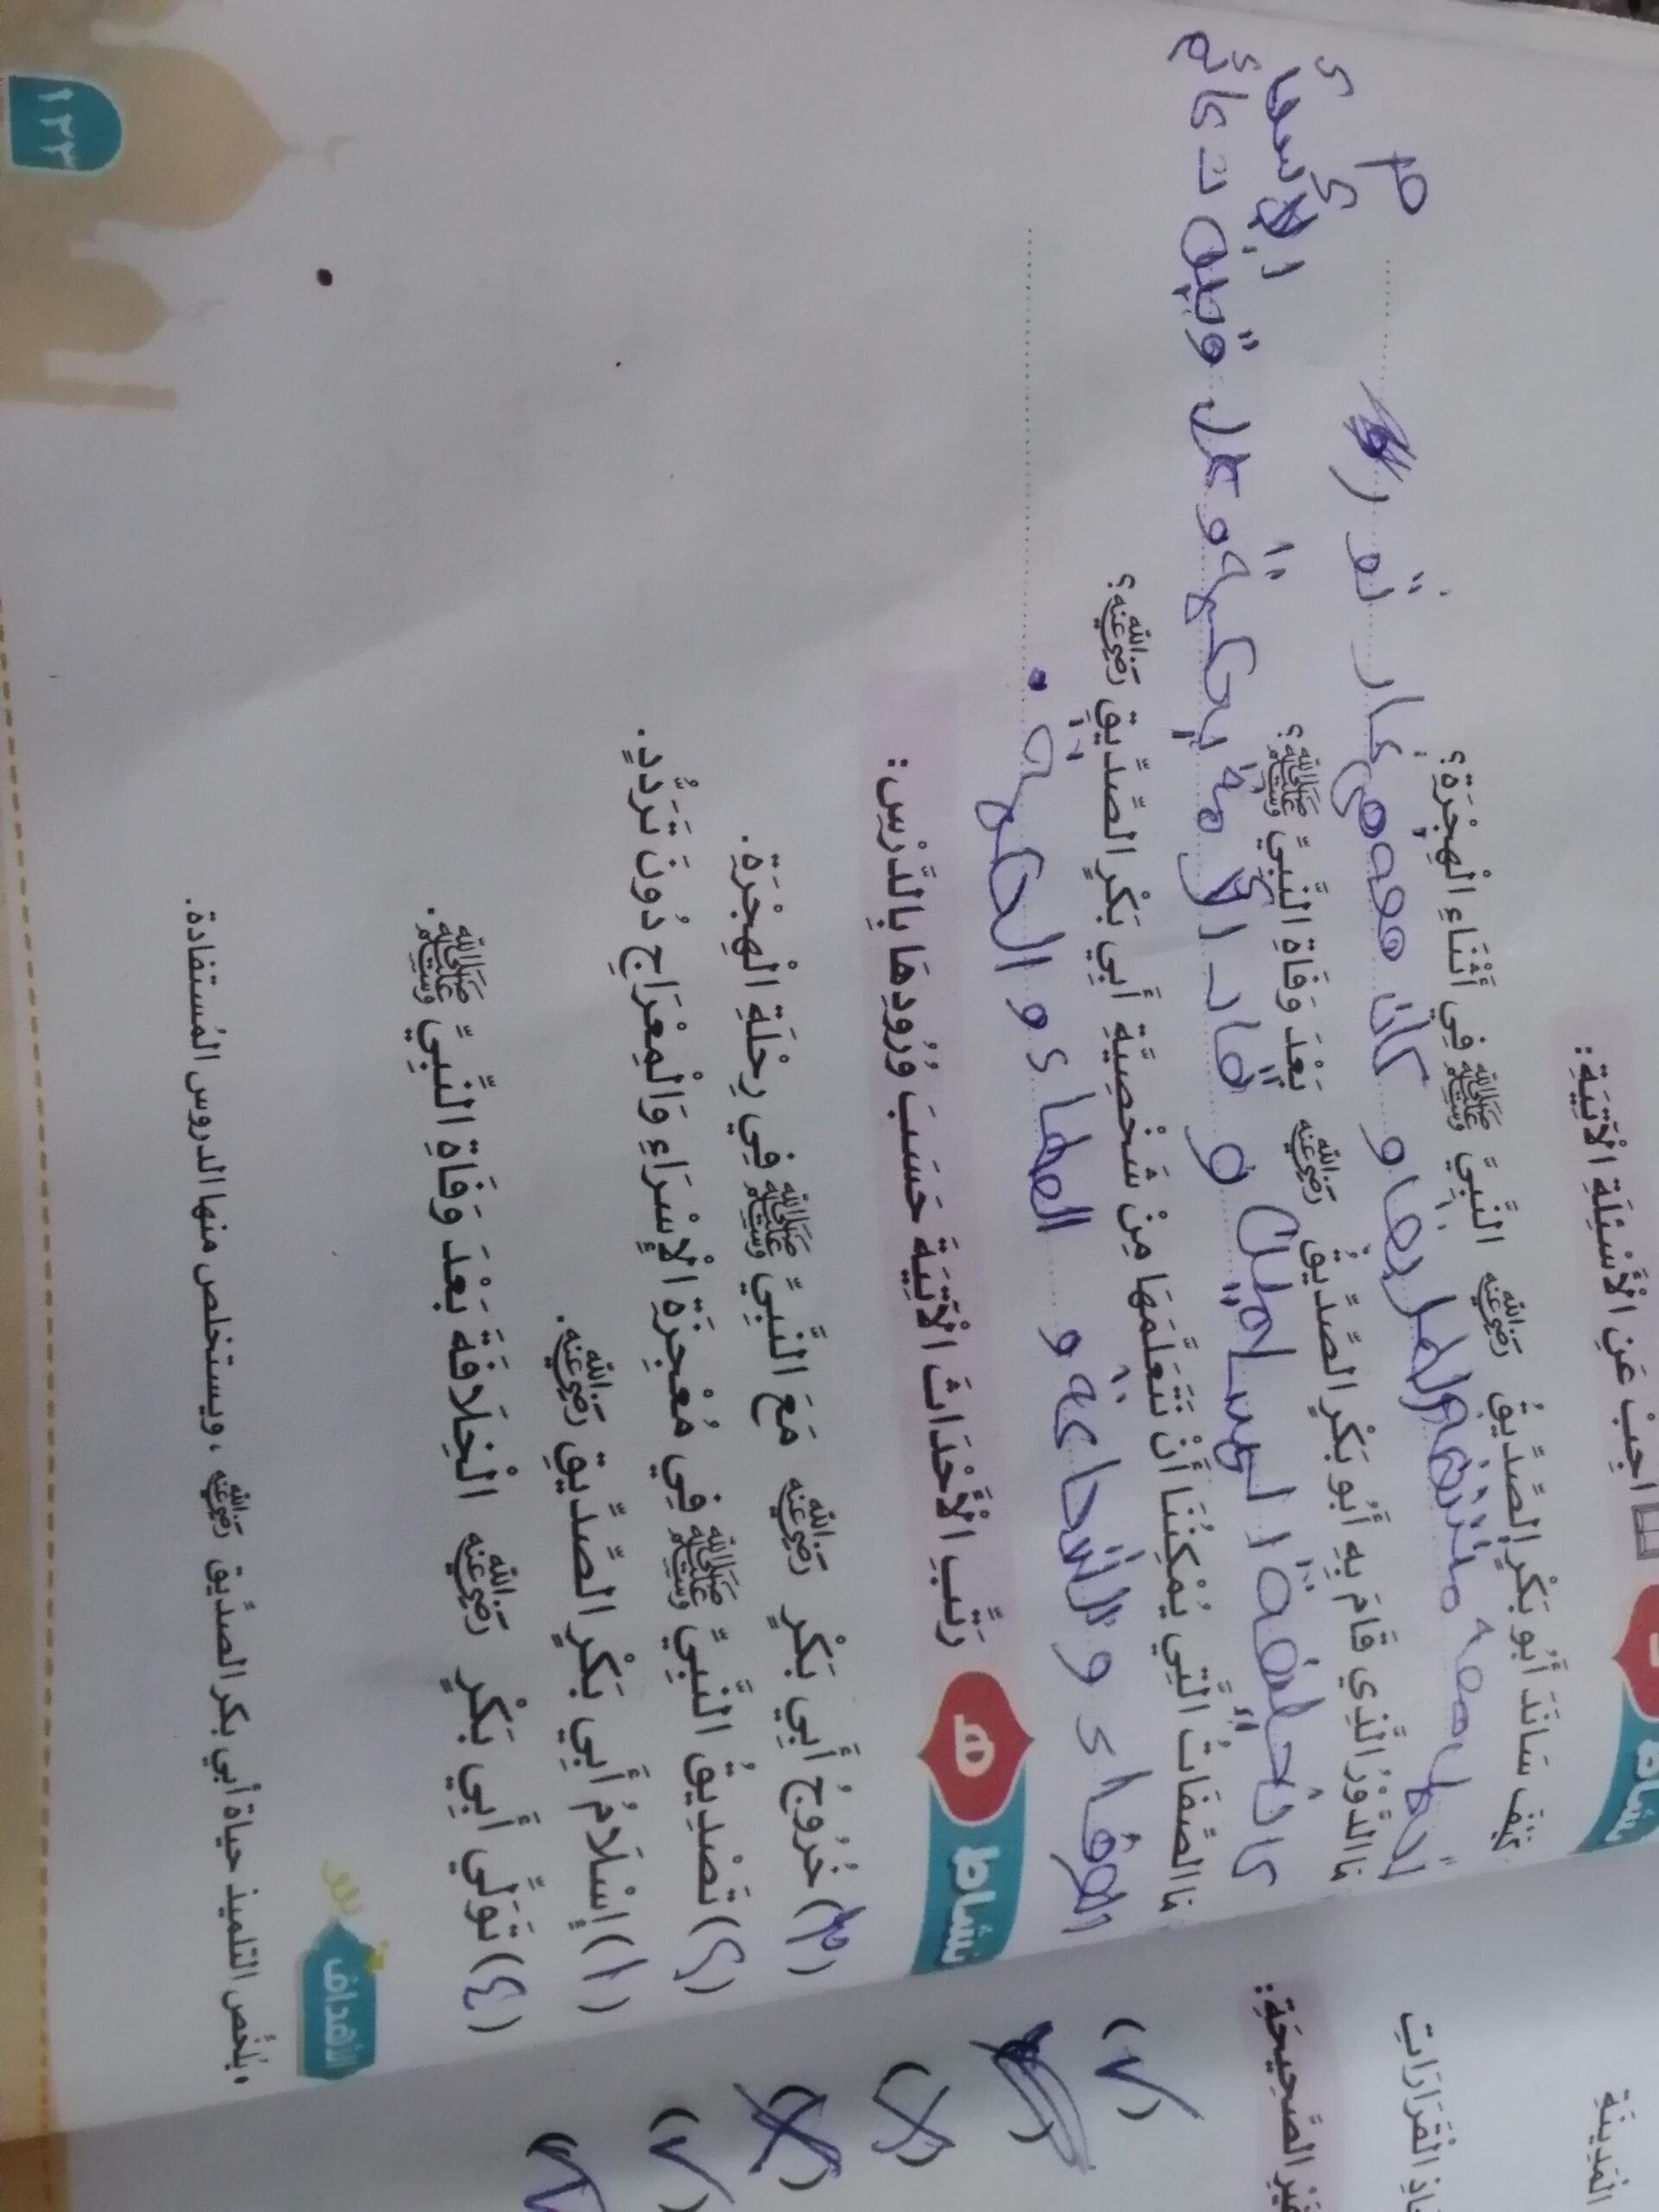 نشاط
أجب عَنِ الْأَسْئِلَةِ الْآتِيَةِ:
كَيْفَ سَانَدَ أَبُو بَكْرٍ الصِّدِّيقُ رَضِيَ اللَّهُ عَنْهُ النَّبِيَّ صَلَّى اللَّهُ عَلَيْهِ وَسَلَّمَ فِي أَثْنَاءِ الْهِجْرَةِ؟
معه الطريق و كان معه في غار ثور
مَا الدَّوْرُ الَّذِي قَامَ بِهِ أَبُو بَكْرٍ الصِّدِّيقُ رَضِيَ اللَّهُ عَنْهُ بَعْدَ وَفَاةِ النَّبِيِّ صَلَّى اللَّهُ عَلَيْهِ وَسَلَّمَ؟
كان خليفة المسلمين و قاد الأمة بحكمة و
مَا الصِّفَاتُ الَّتِي يُمْكِنُنَا أَنْ نَتَعَلَّمَهَا مِنْ شَخْصِيَّةِ أَبِي بَكْرٍ الصِّدِّيقِ رَضِيَ اللَّهُ عَنْهُ؟
الوفاء و الشجاعة و العطاء و الحكمة.
نشاط ه رَتِّبِ الْأَحْدَاثَ الْآتِيَةَ حَسَبَ وُرُودِهَا بِالدَّرْسِ:
(٣) خُرُوجُ أَبِي بَكْرٍ رَضِيَ اللَّهُ عَنْهُ مَعَ النَّبِيِّ صَلَّى اللَّهُ عَلَيْهِ وَسَلَّمَ فِي رِحْلَةِ الْهِجْرَةِ.
(٢) تَصْدِيقُ النَّبِيِّ صَلَّى اللَّهُ عَلَيْهِ وَسَلَّمَ فِي مُعْجِزَةِ الْإِسْرَاءِ وَالْمِعْرَاجِ دُونَ تَرَدُّدٍ.
(١) إِسْلَامُ أَبِي بَكْرٍ الصِّدِّيقِ رَضِيَ اللَّهُ عَنْهُ.
(٤) تَوَلِّي أَبِي بَكْرٍ رَضِيَ اللَّهُ عَنْهُ الْخِلَافَةَ بَعْدَ وَفَاةِ النَّبِيِّ صَلَّى اللَّهُ عَلَيْهِ وَسَلَّمَ.
الأهداف
• يلخص التلميذ حياة أبي بكر الصديق رَضِيَ اللَّهُ عَنْهُ، ويستخلص منها الدروس المُستفادة.
١٢٣
الْمَدِينَةِ
الْقَرَارَاتِ
الصَّحِيحَةِ: